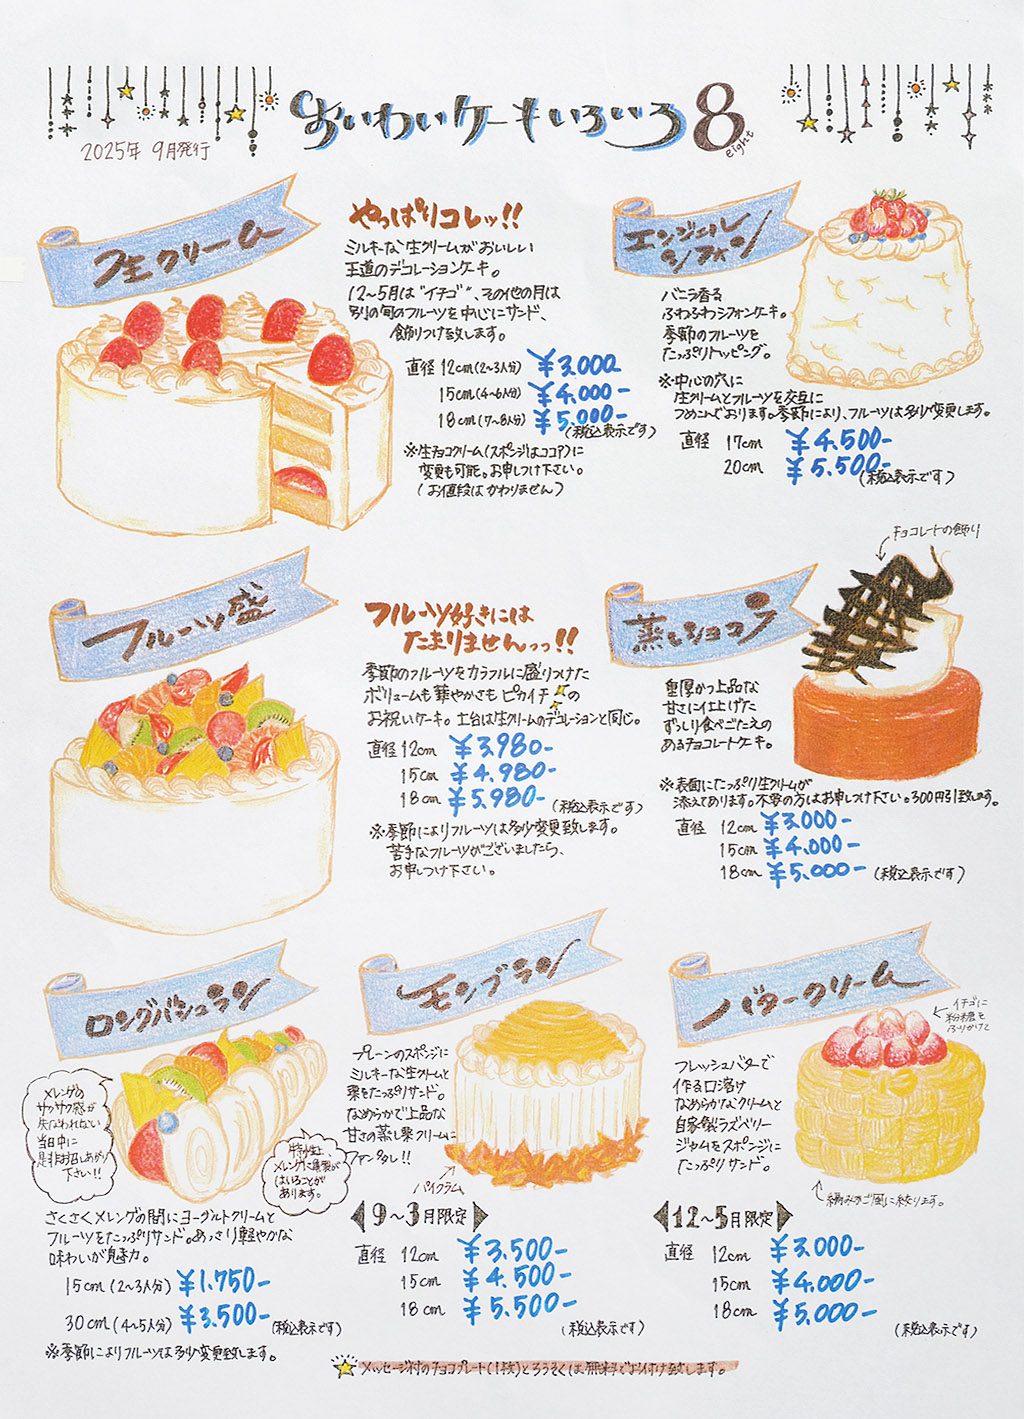 おいわいケーキいろいろ 8
eight
2025年 9月発行
生クリーム
やっぱりコレッ!!
ミルキーな生クリームがおいしい
王道のデコレーションケーキ。
12〜5月は"イチゴ"、その他の月は
別の旬のフルーツを中心にサンド、
飾りつけ致します。
直径 12cm(2〜3人分) ¥3,000-
15cm(4〜6人分) ¥4,000-
18cm(7〜8人分) ¥5,000-
(税込表示です)
※生チョコクリーム(スポンジはココア)に
変更も可能。お申しつけ下さい。
(お値段はかわりません)
エンジェル
シフォン
バニラ香る
ふわふわシフォンケーキ。
季節のフルーツを
たっぷりトッピング。
※中心の穴に
生クリームとフルーツを交互に
つめこんでおります。季節により、フルーツは多少変更します。
直径 17cm ¥4,500-
20cm ¥5,500-
(税込表示です)
フルーツ盛
フルーツ好きには
たまりませんっっ!!
季節のフルーツをカラフルに盛りつけた
ボリュームも華やかさもピカイチの
お祝いケーキ。土台は生クリームのデコレーションと同じ。
直径 12cm ¥3,980-
15cm ¥4,980-
18cm ¥5,980-
(税込表示です)
※季節によりフルーツは多少変更致します。
苦手なフルーツがございましたら、
お申しつけ下さい。
チョコレートの飾り
蒸しショコラ
重厚かつ上品な
甘さに仕上げた
ずっしり食べごたえの
あるチョコレートケーキ。
※表面にたっぷり生クリームが
添えてあります。不要の方はお申しつけ下さい。300円引致します。
直径 12cm ¥3,000-
15cm ¥4,000-
18cm ¥5,000-
(税込表示です)
ロングバシュラン
メレンゲの
サクサク感が
失なわれない
当日中に
是非お召しあがり
下さい!!
特性上、
メレンゲに亀裂が
はいることが
あります。
さくさくメレンゲの間にヨーグルトクリームと
フルーツをたっぷりサンド。あっさり軽やかな
味わいが魅力。
15cm(2〜3人分) ¥1,750-
30cm(4〜5人分) ¥3,500-
(税込表示です)
※季節によりフルーツは多少変更致します。
モンブラン
プレーンのスポンジに
ミルキーな生クリームと
栗をたっぷりサンド。
なめらかで上品な
甘さの蒸し栗クリームに
ファンタレ!!
パイクラム
9〜3月限定
直径 12cm ¥3,500-
15cm ¥4,500-
18cm ¥5,500-
(税込表示です)
バタークリーム
イチゴに
粉糖を
ふりかけて
フレッシュバターで
作る口溶け
なめらかなクリームと
自家製ラズベリー
ジャムをスポンジに
たっぷりサンド。
編みかご風に絞ります。
12〜5月限定
直径 12cm ¥3,000-
15cm ¥4,000-
18cm ¥5,000-
(税込表示です)
メッセージ付のチョコプレート(1枚)とろうそくは無料でお付け致します。